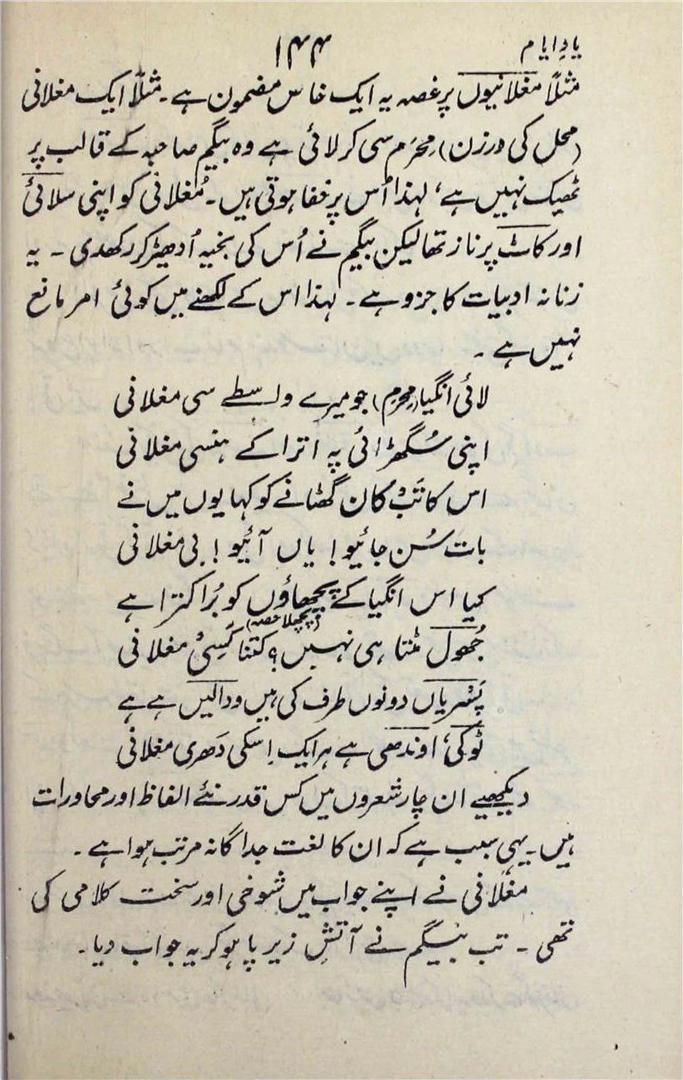 یادِ ایام
۱۴۴
مثلاً مغلانیوں پر غصہ یہ ایک خاس مضمون ہے۔ مثلاً ایک مغلانی
(محل کی درزن) مِحرَم سی کر لائی ہے وہ بیگم صاحبہ کے قالب پر
ٹھیک نہیں ہے، لہذا اُس پر خفا ہوتی ہیں۔ مُغلانی کو اپنی سلائی
اور کاٹ پر ناز تھا لیکن بیگم نے اُس کی بخیہ اُدھیڑ کر رکھدی ۔ یہ
زنانہ ادبیات کا جزو ہے۔ لہذا اس کے لکھنے میں کوئی امر مانع
نہیں ہے ۔
لائی انگیا (مِحرِم) جو میرے واسطے سی مغلانی
اپنی سُگھڑائی پہ اترا کے ہنسی مغلانی
اس کا تَبْ کان گھٹانے کو کہا یوں میں نے
بات سُن جائیو! یاں آئیو! بی مغلانی
کیا اس انگیا کے پچھاؤں کو بُرا کترا ہے
(پچھلا حصہ)
جُھول مٹتا ہی نہیں؟ کتنا کَسِیْ مغلانی
پَسْریاں دونوں طرف کی ہیں ودالیں ہے ہے
ٹوکیٔ اوندھی ہے ہر ایک اِسکی دَھری مغلانی
دیکھیے ان چار شعروں میں کس قدر نئے الفاظ اور محاورات
ہیں۔ یہی سبب ہے کہ ان کا لغت جداگانہ مرتب ہوا ہے ۔
مغلانی نے اپنے جواب میں شوخی اور سخت کلامی کی
تھی ۔ تب بیگم نے آتشِ زیرِ پا ہو کر یہ جواب دیا۔